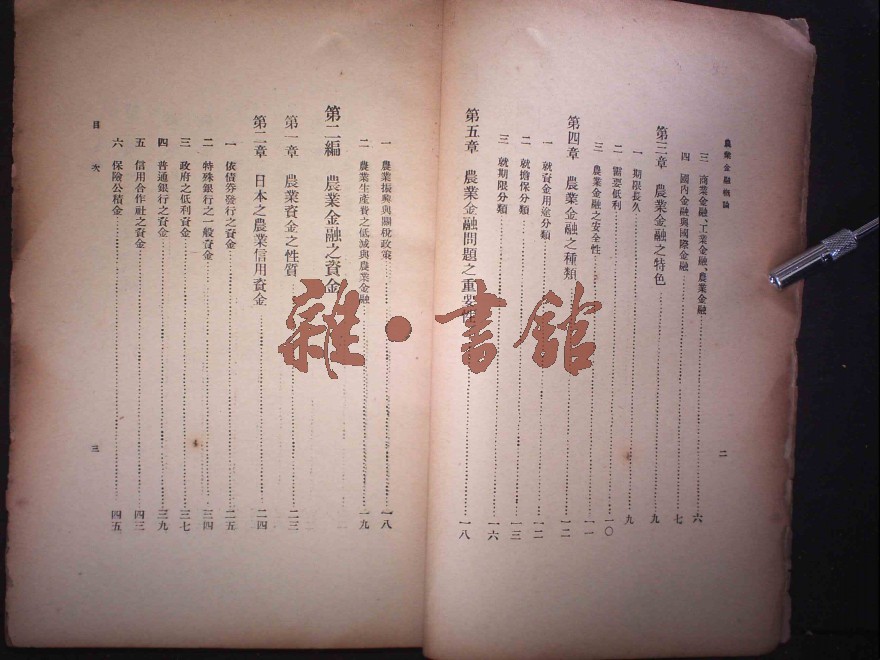 農業金融概論
二
三 商業金融、工業金融、農業金融……六
四 國內金融與國際金融……七
第三章 農業金融之特色……九
一 期限長久……九
二 需要低利……一〇
三 農業金融之安全性……一一
第四章 農業金融之種類……一二
一 就資金用途分類……一二
二 就擔保分類……一三
三 就期限分類……一六
第五章 農業金融問題之重要性……一八
一 農業振興與關稅政策……一八
二 農業生產費之低減與農業金融……一九
第二編 農業金融之資金
第一章 農業資金之性質……二三
第二章 日本之農業信用資金……二四
一 依債券發行之資金……二五
二 特殊銀行之一般資金……三四
三 政府之低利資金……三七
四 普通銀行之資金……三九
五 信用合作社之資金……四三
六 保險公積金……四五
目次
三
雜·書館